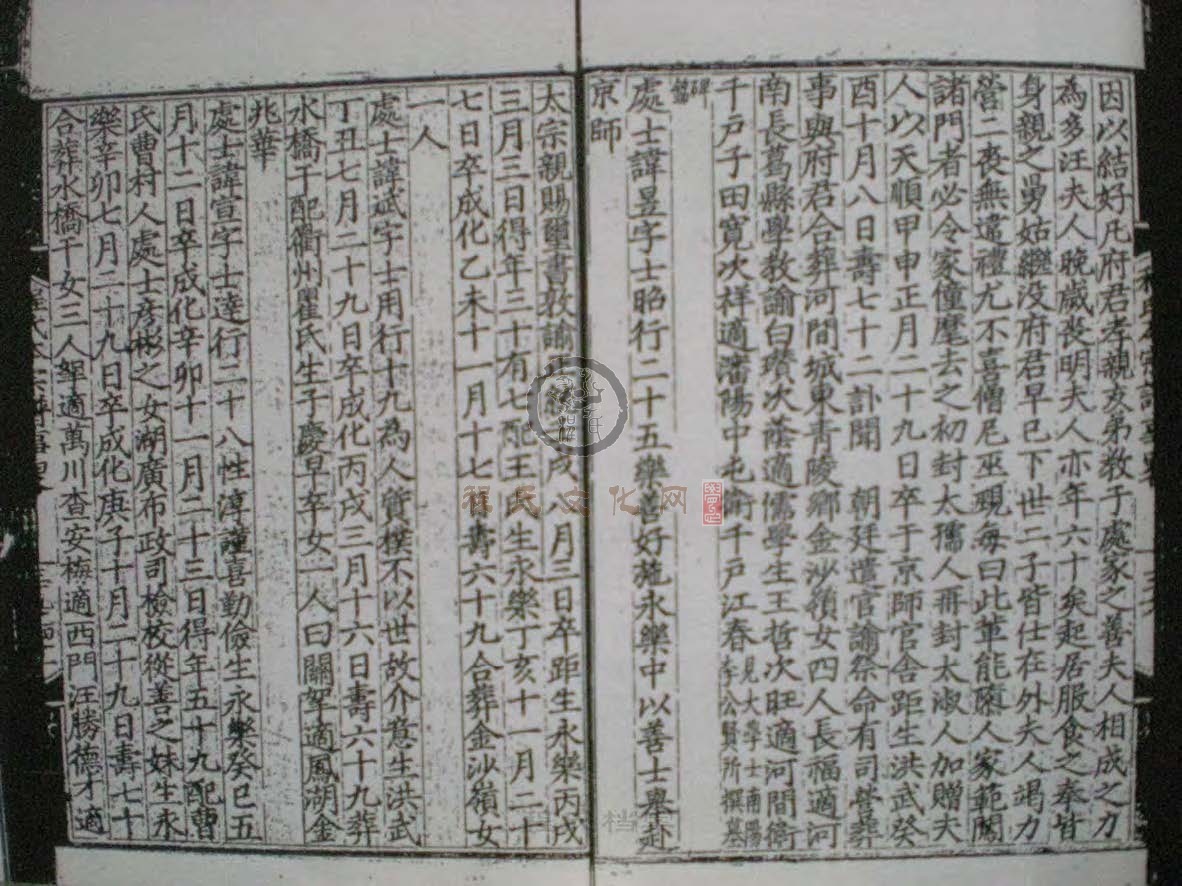 因以結好凡府君孝親友弟教子處家之善夫人相成之力
為多汪夫人晚歲喪明夫人亦年六十矣起居服食之奉甘
身親之舅姑繼没府君早已下世二子皆仕在外夫人竭力
營二喪無遺禮尤不喜僧尼巫覡每曰此輩能隳人家範闖
諸門者必令家僮麾去之初封太孺人再封太淑人加贈夫
人以天順甲申正月二十九日卒于京師官舍距生洪武癸
酉十月八日壽七十二訃聞 朝廷遣官諭祭命有司營葬
事與府君合葬河間城東青陵鄉金沙嶺女四人長福適河
南長葛縣學教諭白瓚次蔭適儒學生王哲次旺適河間衛
千戶子田寬次祥適瀋陽中屯衛千戶江春見大學士南陽李公賢所撰墓
碑銘
處士諱昱字士昭行二十五樂善好施永樂中以善士舉赴
京師
太宗親賜璽書敦諭 戌八月三日卒距生永樂丙戌
三月三日得年三十有七配王氏生永樂丁亥十一月二十
七日卒成化乙未十一月十七 壽六十九合葬金沙嶺女
一人
處士諱斌字士用行十九為人質樸不以世故介意生洪武
丁丑七月二十九日卒成化丙戌三月十六日壽六十九葬
水橋干配衢州瞿氏生子慶早卒女一人曰關㜯適鳳湖金
兆華
處士諱宣字士達行二十八性淳謹喜勤儉生永樂癸巳五
月十二日卒成化辛卯十一月二十三日得年五十九配曹
氏曹村人處士彥彬之女湖廣布政司檢校從善之妹生永
樂辛卯七月二十九日卒成化庚子十月二十九日壽七十
合葬水橋干女三人㜯適萬川查安梅適西門汪勝德才適
程氏文化网